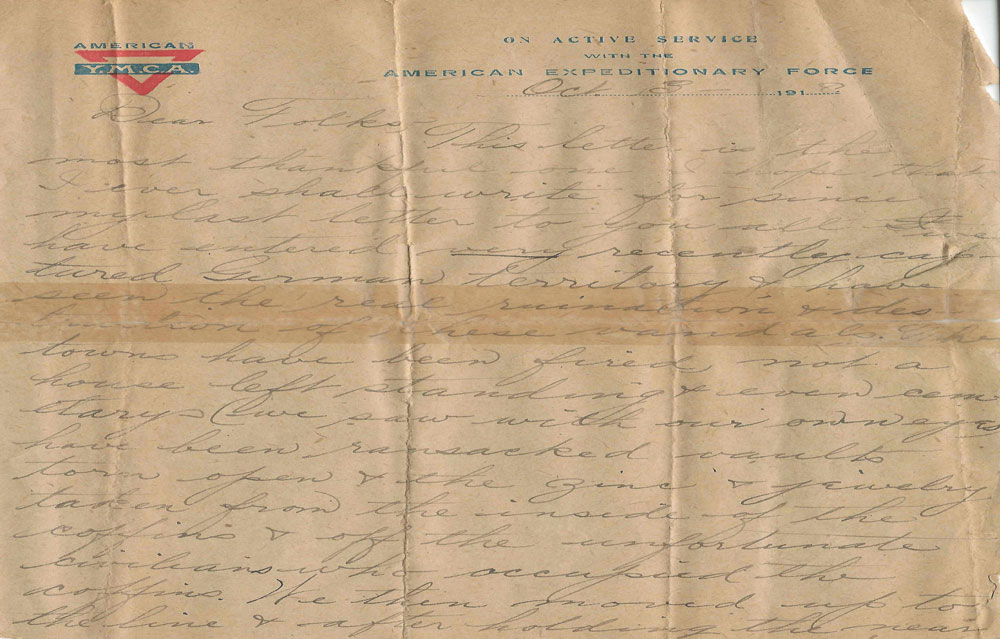 AMERICAN
Y.M.C.A.
ON ACTIVE SERVICE
WITH THE
AMERICAN EXPEDITIONARY FORCE
Oct. 3 1918
Dear Folks - This letter is the
most thankful one I hope that
I ever shall write for since
my last letter to you all I
have entered very recently cap-
tured German territory & have
seen the real ruination & des-
truction of these vandals. The
towns have been fired not a
house left standing & even cem
etarys (we saw with our own eyes
have been ransacked vaults
torn open & the zinc & jewelry
taken from the inside of the
coffins & off the unfortunate
civilians who occupied the
coffins. We then moved up to
the line & after holding the